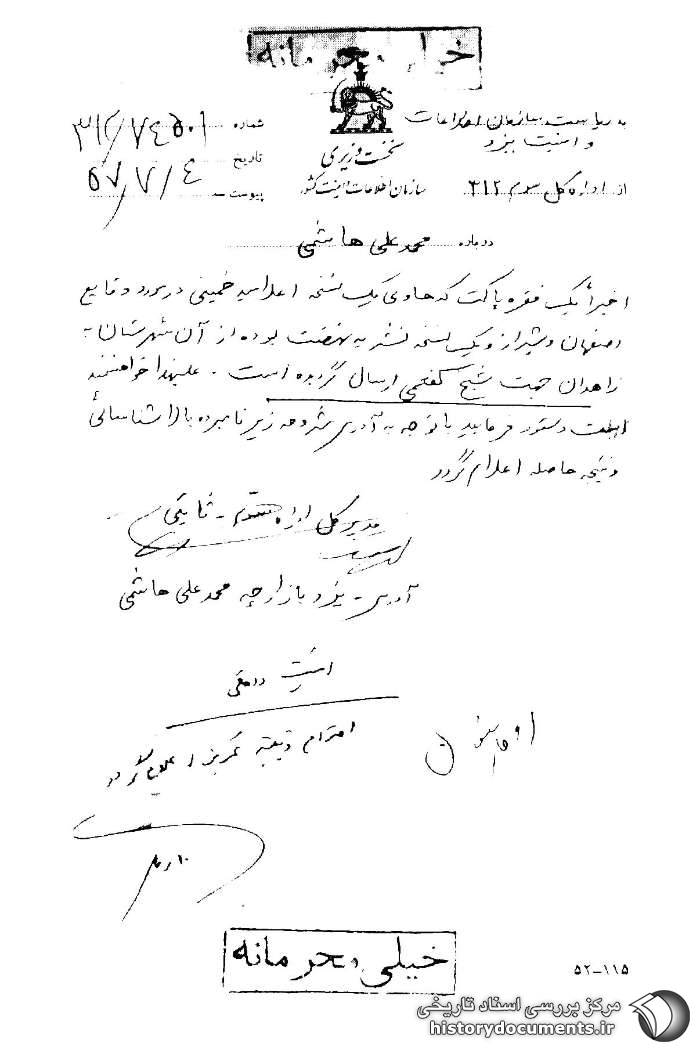 خیلی محرمانه
به ریاست سازمان اطلاعات
و امنیت یزد
نخست وزیری
سازمان اطلاعات و امنیت کشور
شماره ۳۱۲/۷۴۵۰۱
تاریخ ۵۷/۷/۴
پیوست
از اداره کل سوم ۳۱۲
درباره محمد علی هاشمی
اخیراً یک فقره پاکت که حاوی یک نسخه اعلامیه خمینی در مورد وقایع
اصفهان و شیراز و یک نسخه نشریه نهضت بوده از آن شهرستان به
زاهدان جهت شیخ کفعمی ارسال گردیده است - علیهذا خواهشمند
است دستور فرمایید با توجه به آدرس مشروحه زیر نامبرده بالا شناسائی
و نتیجه حاصله اعلام گردد
مدیر کل اداره سوم - ثابتی
آدرس - یزد بازارچه محمد علی هاشمی
امنیت داخلی
اقدام و نتیجه بمرکز اعلام گردد
۱۰/۷
خیلی محرمانه
۵۲-۱۱۵
مرکز بررسی اسناد تاریخی
historydocuments.ir